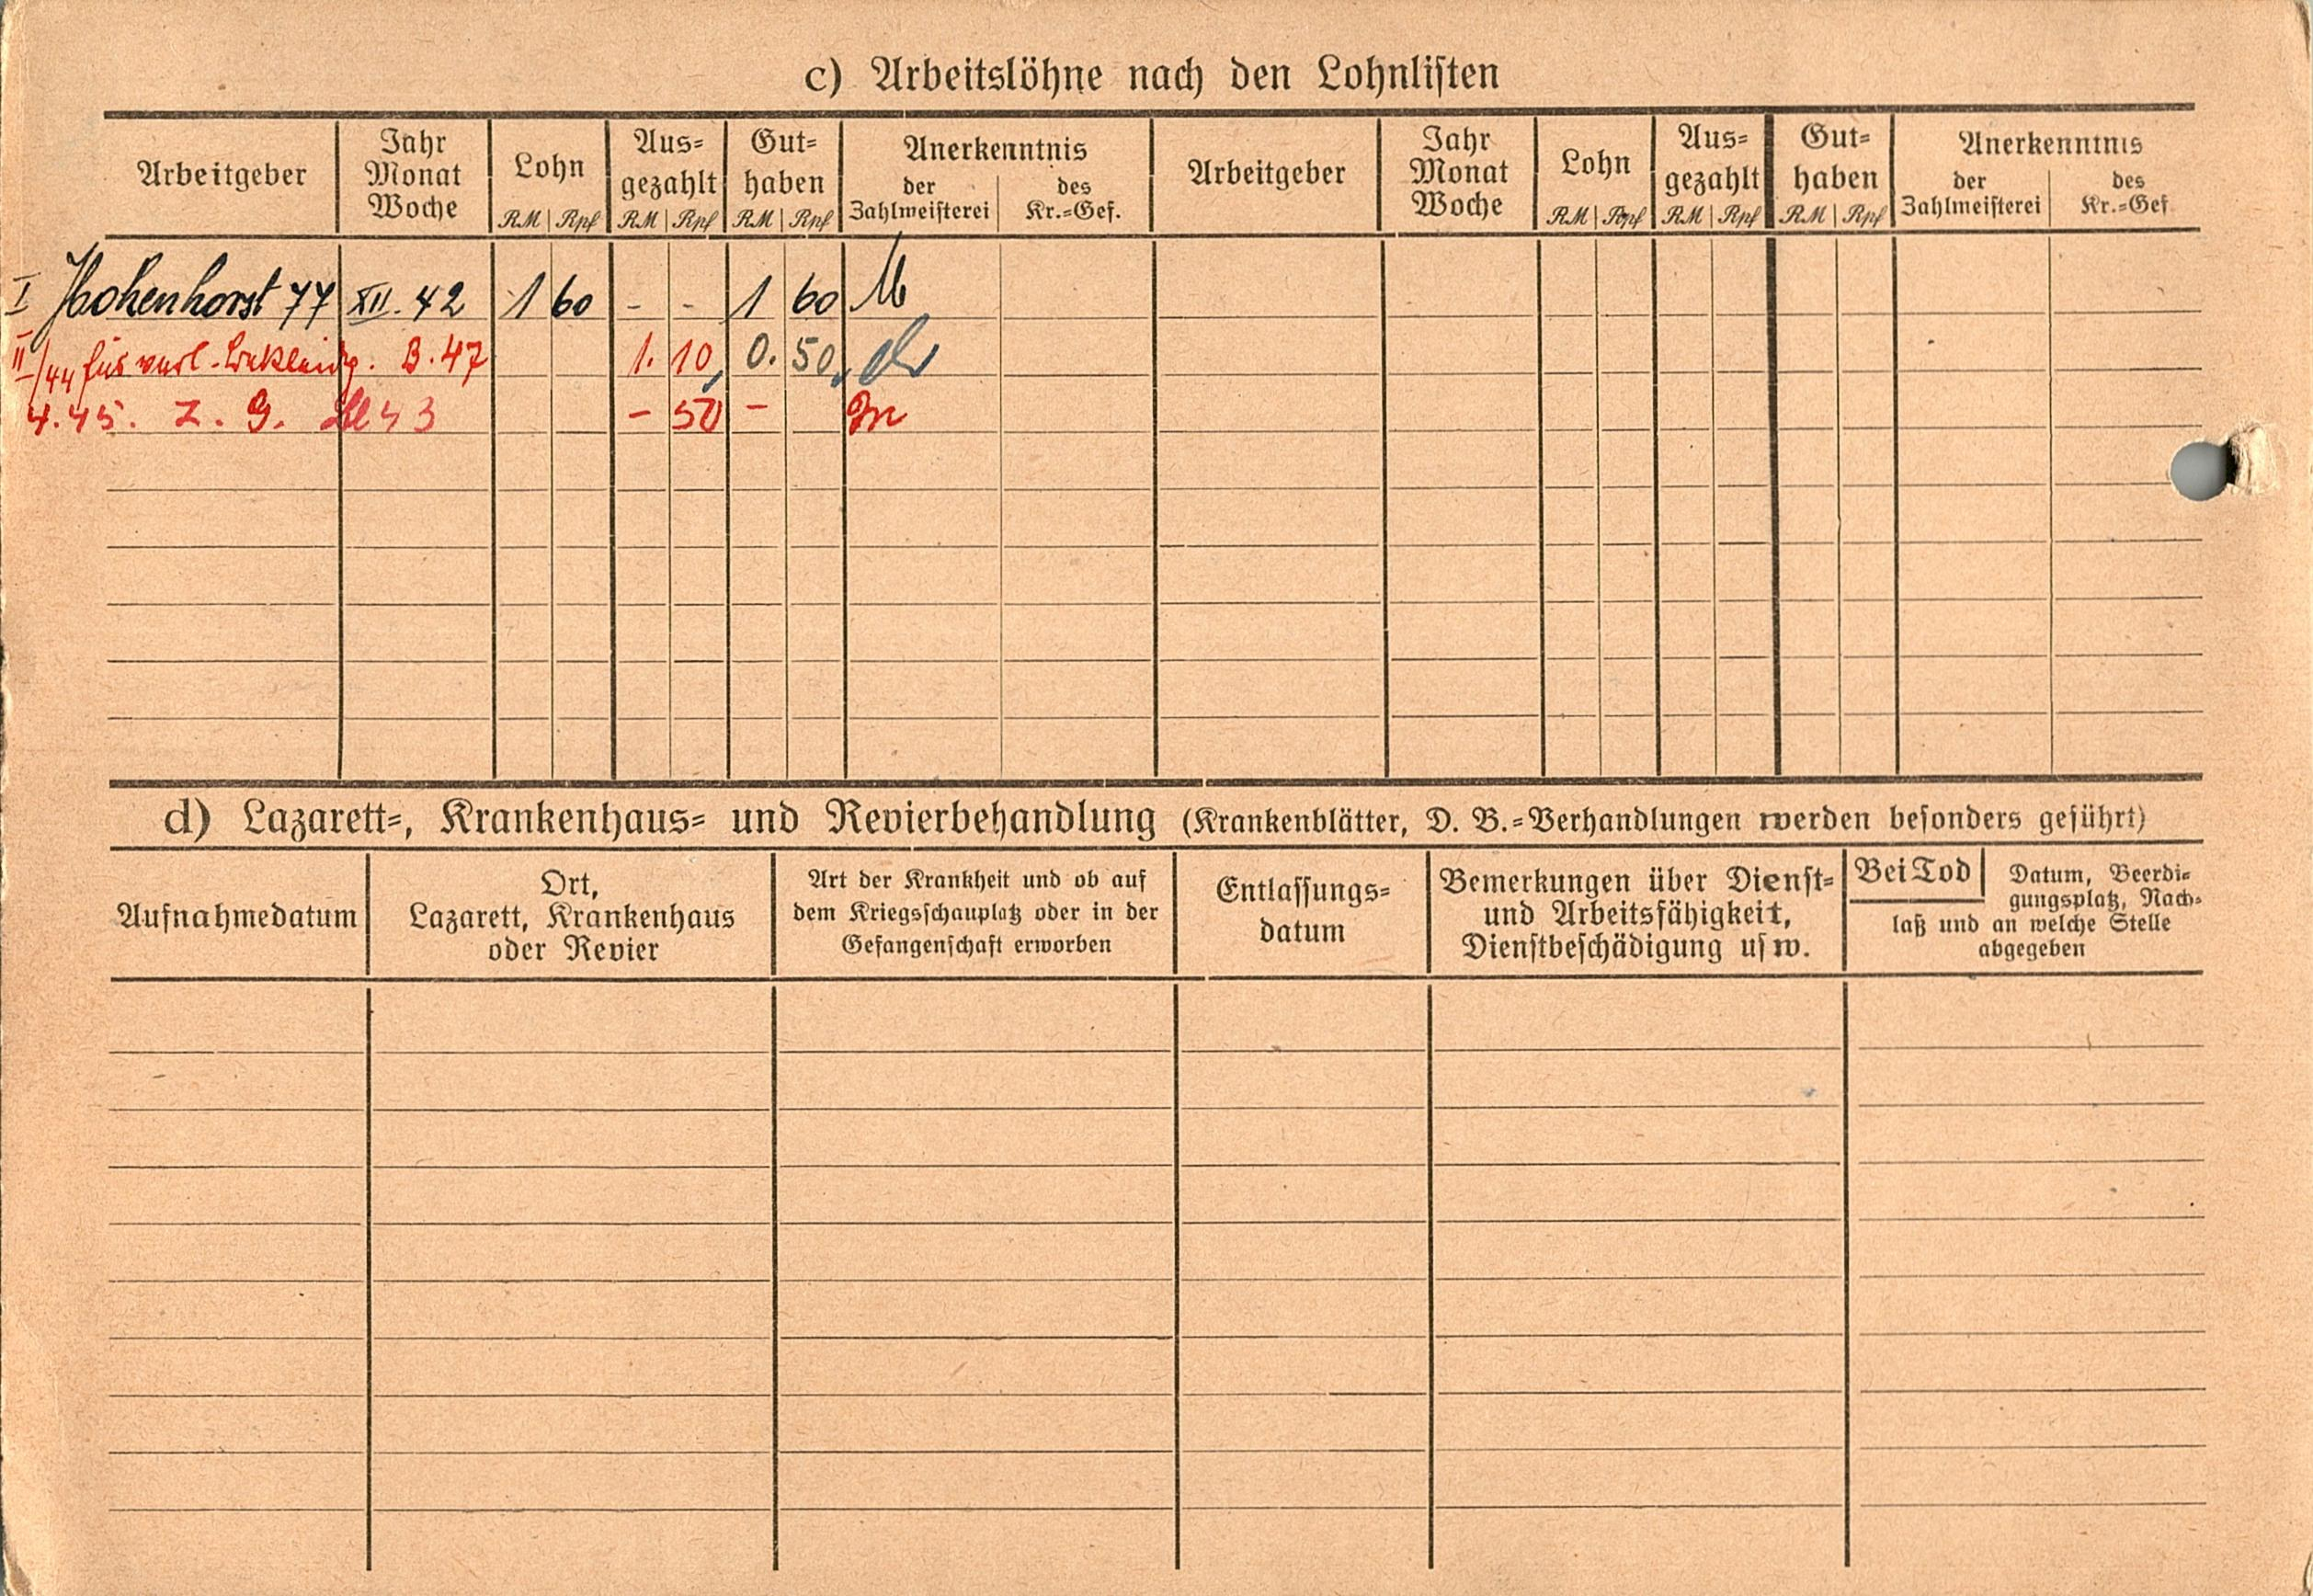 c) Arbeitslöhne nach den Lohnlisten
Arbeitgeber
Jahr
Monat
Woche
Lohn
RM Rpf
Aus-
gezahlt
RM Rpf
Gut-
haben
RM Rpf
Anerkenntnis
der
Zahlmeisterei
des
Kr.-Gef.
Arbeitgeber
Jahr
Monat
Woche
Lohn
RM Rpf
Aus-
gezahlt
RM Rpf
Gut-
haben
RM Rpf
Anerkenntnis
der
Zahlmeisterei
des
Kr.-Gef
I Hohenhorst 77 XII. 42 1 60 - - 1 60
II/44 für verl. B. 47 1. 10 0. 50
4.45. Z. G. 43 - 50 -
d) Lazarett-, Krankenhaus- und Revierbehandlung (Krankenblätter, D. B.-Verhandlungen werden besonders geführt)
Aufnahmedatum
Ort,
Lazarett, Krankenhaus
oder Revier
Art der Krankheit und ob auf
dem Kriegsschauplatz oder in der
Gefangenschaft erworben
Entlassungs-
datum
Bemerkungen über Dienst-
und Arbeitsfähigkeit,
Dienstbeschädigung usw.
Bei Tod Datum, Beerdi-
gungsplatz, Nach-
laß und an welche Stelle
abgegeben